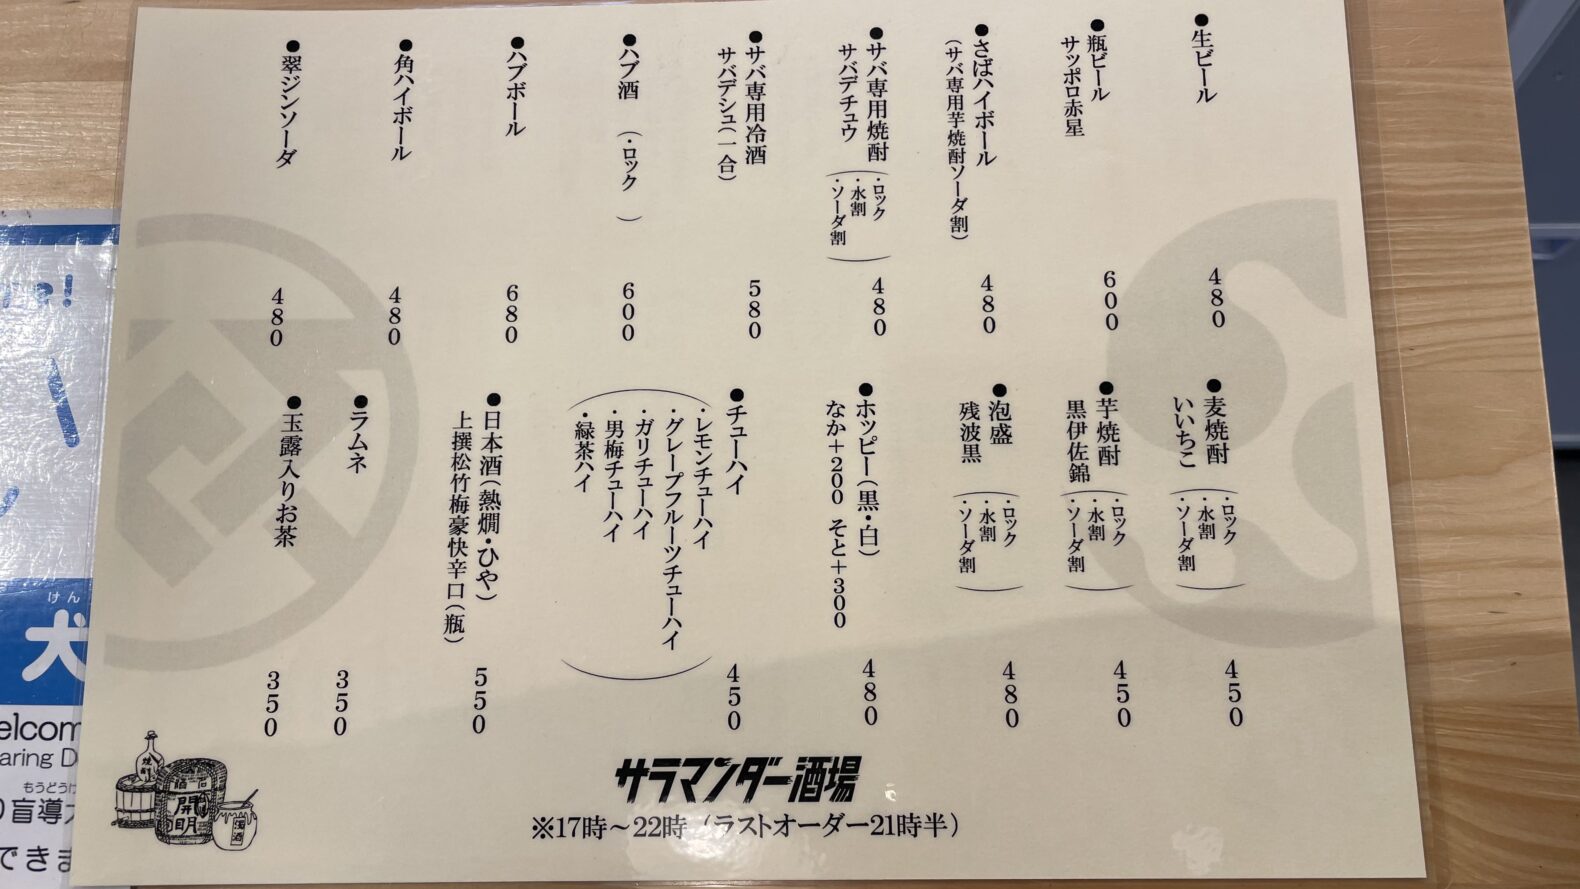 ●生ビール
480
●瓶ビール
サッポロ赤星
600
●さばハイボール
（サバ専用芋焼酎ソーダ割）
480
●サバ専用焼酎
サバデチュウ
・ロック
・水割
・ソーダ割
480
●サバ専用冷酒
サバデシュ（一合）
580
●ハブ酒 （・ロック ）
600
●ハブボール
680
●角ハイボール
480
●翠ジンソーダ
480
●麦焼酎
いいちこ
・ロック
・水割
・ソーダ割
450
●芋焼酎
黒伊佐錦
・ロック
・水割
・ソーダ割
450
●泡盛
残波黒
・ロック
・水割
・ソーダ割
480
●ホッピー（黒・白）
なか＋200 そと＋300
480
●チューハイ
・レモンチューハイ
・グレープフルーツチューハイ
・ガリチューハイ
・男梅チューハイ
・緑茶ハイ
450
●日本酒（熱燗・ひや）
上撰松竹梅豪快辛口（瓶）
550
●ラムネ
350
●玉露入りお茶
350
サラマンダー酒場
※17時～22時（ラストオーダー21時半）
焼酎
開明
濁酒
けん
犬
elcom
aring D
もうどうけ
盲導
できま